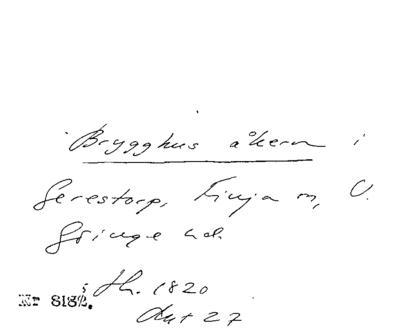 Brygghus åkern i
Gerestorp, Finja sn, V.
Göinge hd.
Nr 8182. sth. 1820
Akt 27